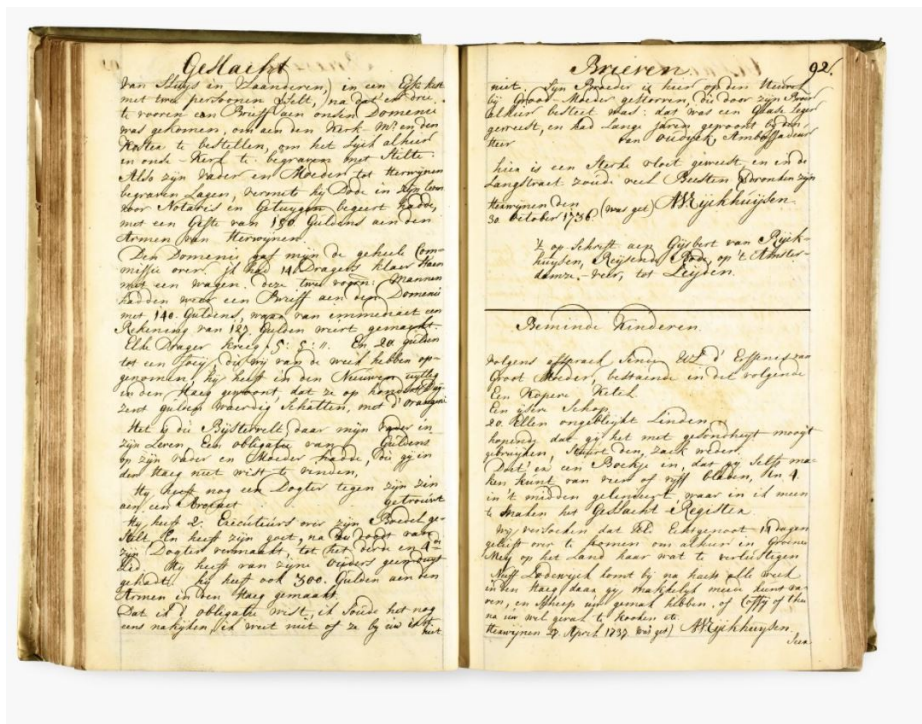 Geslacht
van Sluys in Vlaanderen, in een Eyke kist
met twee persoonen Selt, na dat en drie
te vooren een Brieff aen onsen Domenie
was gekomen, om aen den Kerk Mr. en den
Koster te bestellen, om het Lyck alhier
in onse Kerk te begraven met Stilte.
Alsoo zijn Vader en Moeder tot Herwijnen
begraven Lagen, vermits hij Dode in zijn Leven
voor Notaris en Getuygen begeert hadde,
met een Gifte van 150 Guldens aen den
Armen van Herwijnen.
Den Domenie gaf mijn de geheele Com-
missie over. ik had 14 Dragers klaer staen
met een wagen. deze twee Mannen
hadden weer een Brieff aen den Domenie
met 140 Guldens, waer van een
Rekening van 127 Gulden wiert gemaekt.
Elke Drager kreeg 5: 5: 11. En 20 gulden
tot een Foeij, die wij van de weird hebben op-
genomen, hij heeft in den Nieuwen uytleg
in den Haeg gewoont, dat ze op hondert Duy-
zent gulden waerdig Schatten, met d'orangie
Het is die Bijstervelt daer mijn Vader in
zijn Leven, Een obligatie van Guldens
op zijn vader en Moeder hadde, die gy in
den Haeg niet wist te vinden.
Hy heeft nog een Dogter tegen zijn zin
aen een Advocaet getrouwt
Hy heeft 2 Executeurs over zijn Boedel ge-
stelt. En heeft zijn goet, na de doodt van
zijn Dogter vermaekt, tot het derde en 4de
Lid. Hy heeft van zijne ouders
gehadt. hy heeft ook 300. Gulden aen den
Armen in den Haeg gemaekt.
Dat ik d' obligatie wist, ik soude het nog
eens nakijken, ik weet niet of ze by uw is of
niet
Brieven. 92.
niet. Syn Broeder is hier op den Heuvel
bij Groot-Moeder gestorven, die door zijn Broer
alhier besteet was: dat was een Glase
geweest, en had Lange jaren gewoont bij den
Heer van Odijck, Ambassadeur
hier is een Sterke vloet geweest en in de
Langstraet zoude veel Beesten verdronken zijn
Herwijnen den
30. October 1736 (was get) ARijckhuijsen.
't op Schrift aen Gijsbert van Rijck-
huysen, Reysende Bode op 't Amster-
damze-veer, tot Leyden.
Beminde Kinderen.
volgens afspraek, Sende UL d' Effen van
Groot Moeder, bestaende in dit volgende
Een Kopere Ketel
En ijsere Schop
20. Ellen ongebleykt Linden,
hopende dat gij het met gesondheyt mooyt
gebruyken, Stuert den zack weder.
Doet' er een Boekje in, dat gy Selfs ma-
ken kunt van vier of vyff bladen, En 4.
in 't midden gelinieert, waer in ik meen
te maken het Geslacht-Register
wy versoeken dat UL Echtgenoot 14 dagen
gelieft over te komen om alhier in Groene
Mey op het Land haer wat te verlustigen
Neeff Lodewyck komt bij na haest alle week
in den Haeg daer gy makkelyk mede kunt va-
ren, en Scheep uw gemak hebben, of Coffy of thee
na uw wel geval te kooken etc
Herwijnen 27. April 1737 was get) ARijckhuijsen.